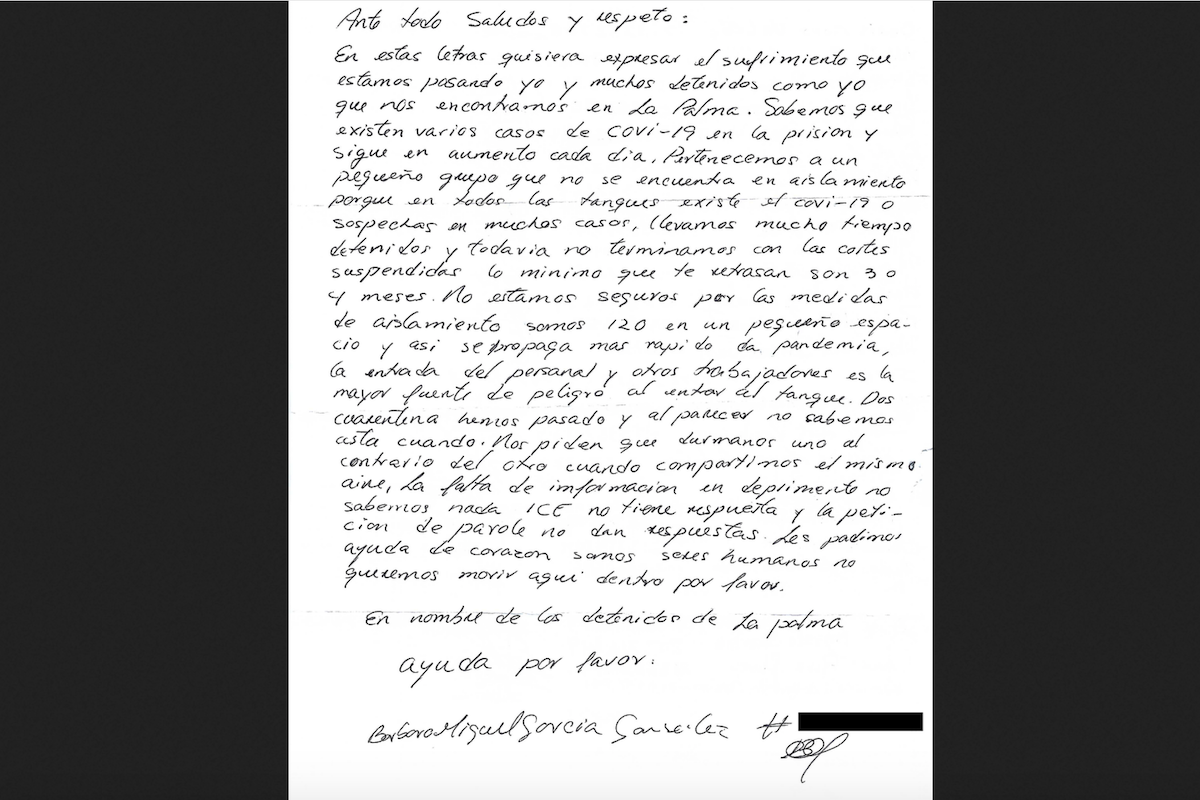 Ante todo Saludos y respeto:
En estas letras quisiera expresar el sufrimiento que
estamos pasando yo y muchos detenidos como yo
que nos encontramos en La Palma. Sabemos que
existen varios casos de COVI-19 en la prision y
sigue en aumento cada dia. Pertenecemos a un
pequeño grupo que no se encuentra en aislamiento
porque en todos las tangues existe el covi-19 o
sospechas en muchos casos, llevamos mucho tiempo
detenidos y todavia no terminamos con las cortes
suspendidas lo minimo que te retrasan son 3 o
4 meses. No estamos seguros por las medidas
de aislamiento somos 120 en un pequeño espa-
cio y asi se propaga mas rapido da pandemia,
la entrada del personal y otros trabajadores es la
mayor fuente de peligro al entrar al tangue. Dos
cuarentina hemos pasado y al parecer no sabemos
asta cuando. Nos piden que durmanos uno al
contrario del otro cuando compartimos el mismo
aire, La falta de imformacion en deprimento no
sabemos nada ICE no tiene respuesta y la peti-
cion de parole no dan respuestas. Les padimos
ayuda de corazon somos seres humanos no
queremos morir aqui dentro por favor.
En nombre de los detenidos de La palma
ayuda por favor.
Barbaro Miguel Garcia Gonzalez #